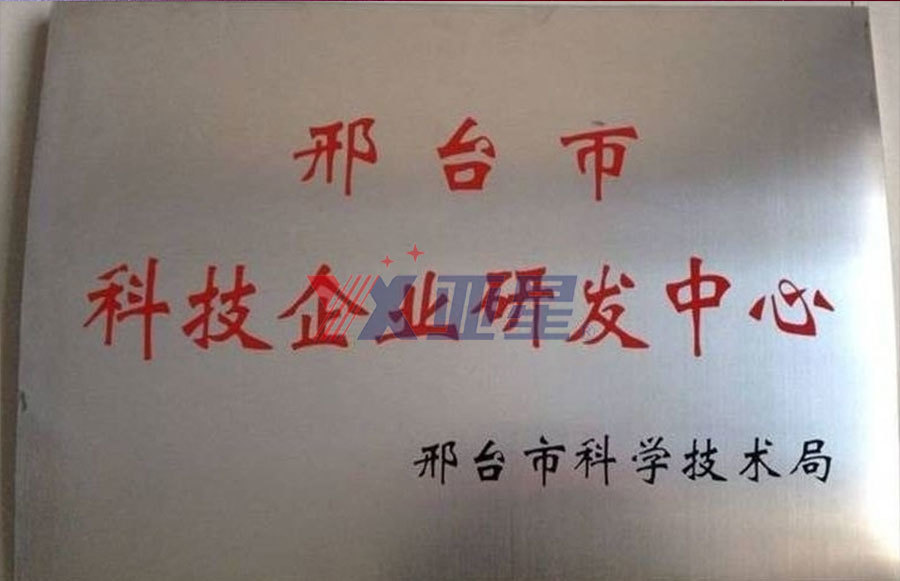 邢台市
科技企业研发中心
YX亚星
邢台市科学技术局